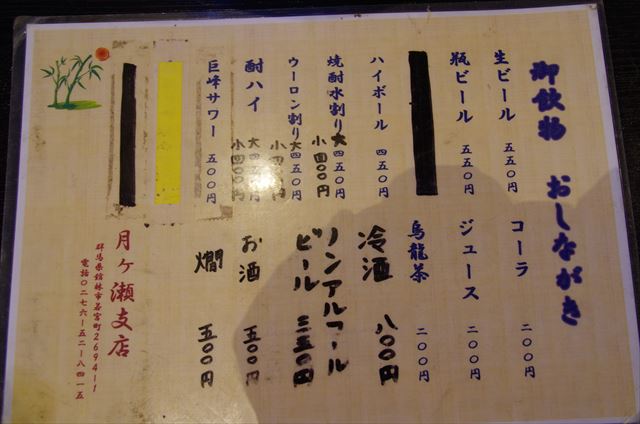 御飲物　おしながき
生ビール　五五〇円
瓶ビール　五五〇円
ハイボール　四五〇円
焼酎水割り大四五〇円
小四〇〇円
ウーロン割り大四五〇円
小四〇〇円
酎ハイ　大四五〇円
小四〇〇円
巨峰サワー　五〇〇円
コーラ　二〇〇円
ジュース　二〇〇円
烏龍茶　二〇〇円
冷酒　八〇〇円
ノンアルコール
ビール　三五〇円
お酒　五〇〇円
燗　五〇〇円
月ヶ瀬支店
群馬県館林市若宮町2694-1
電話〇二七六-五二-八四一五